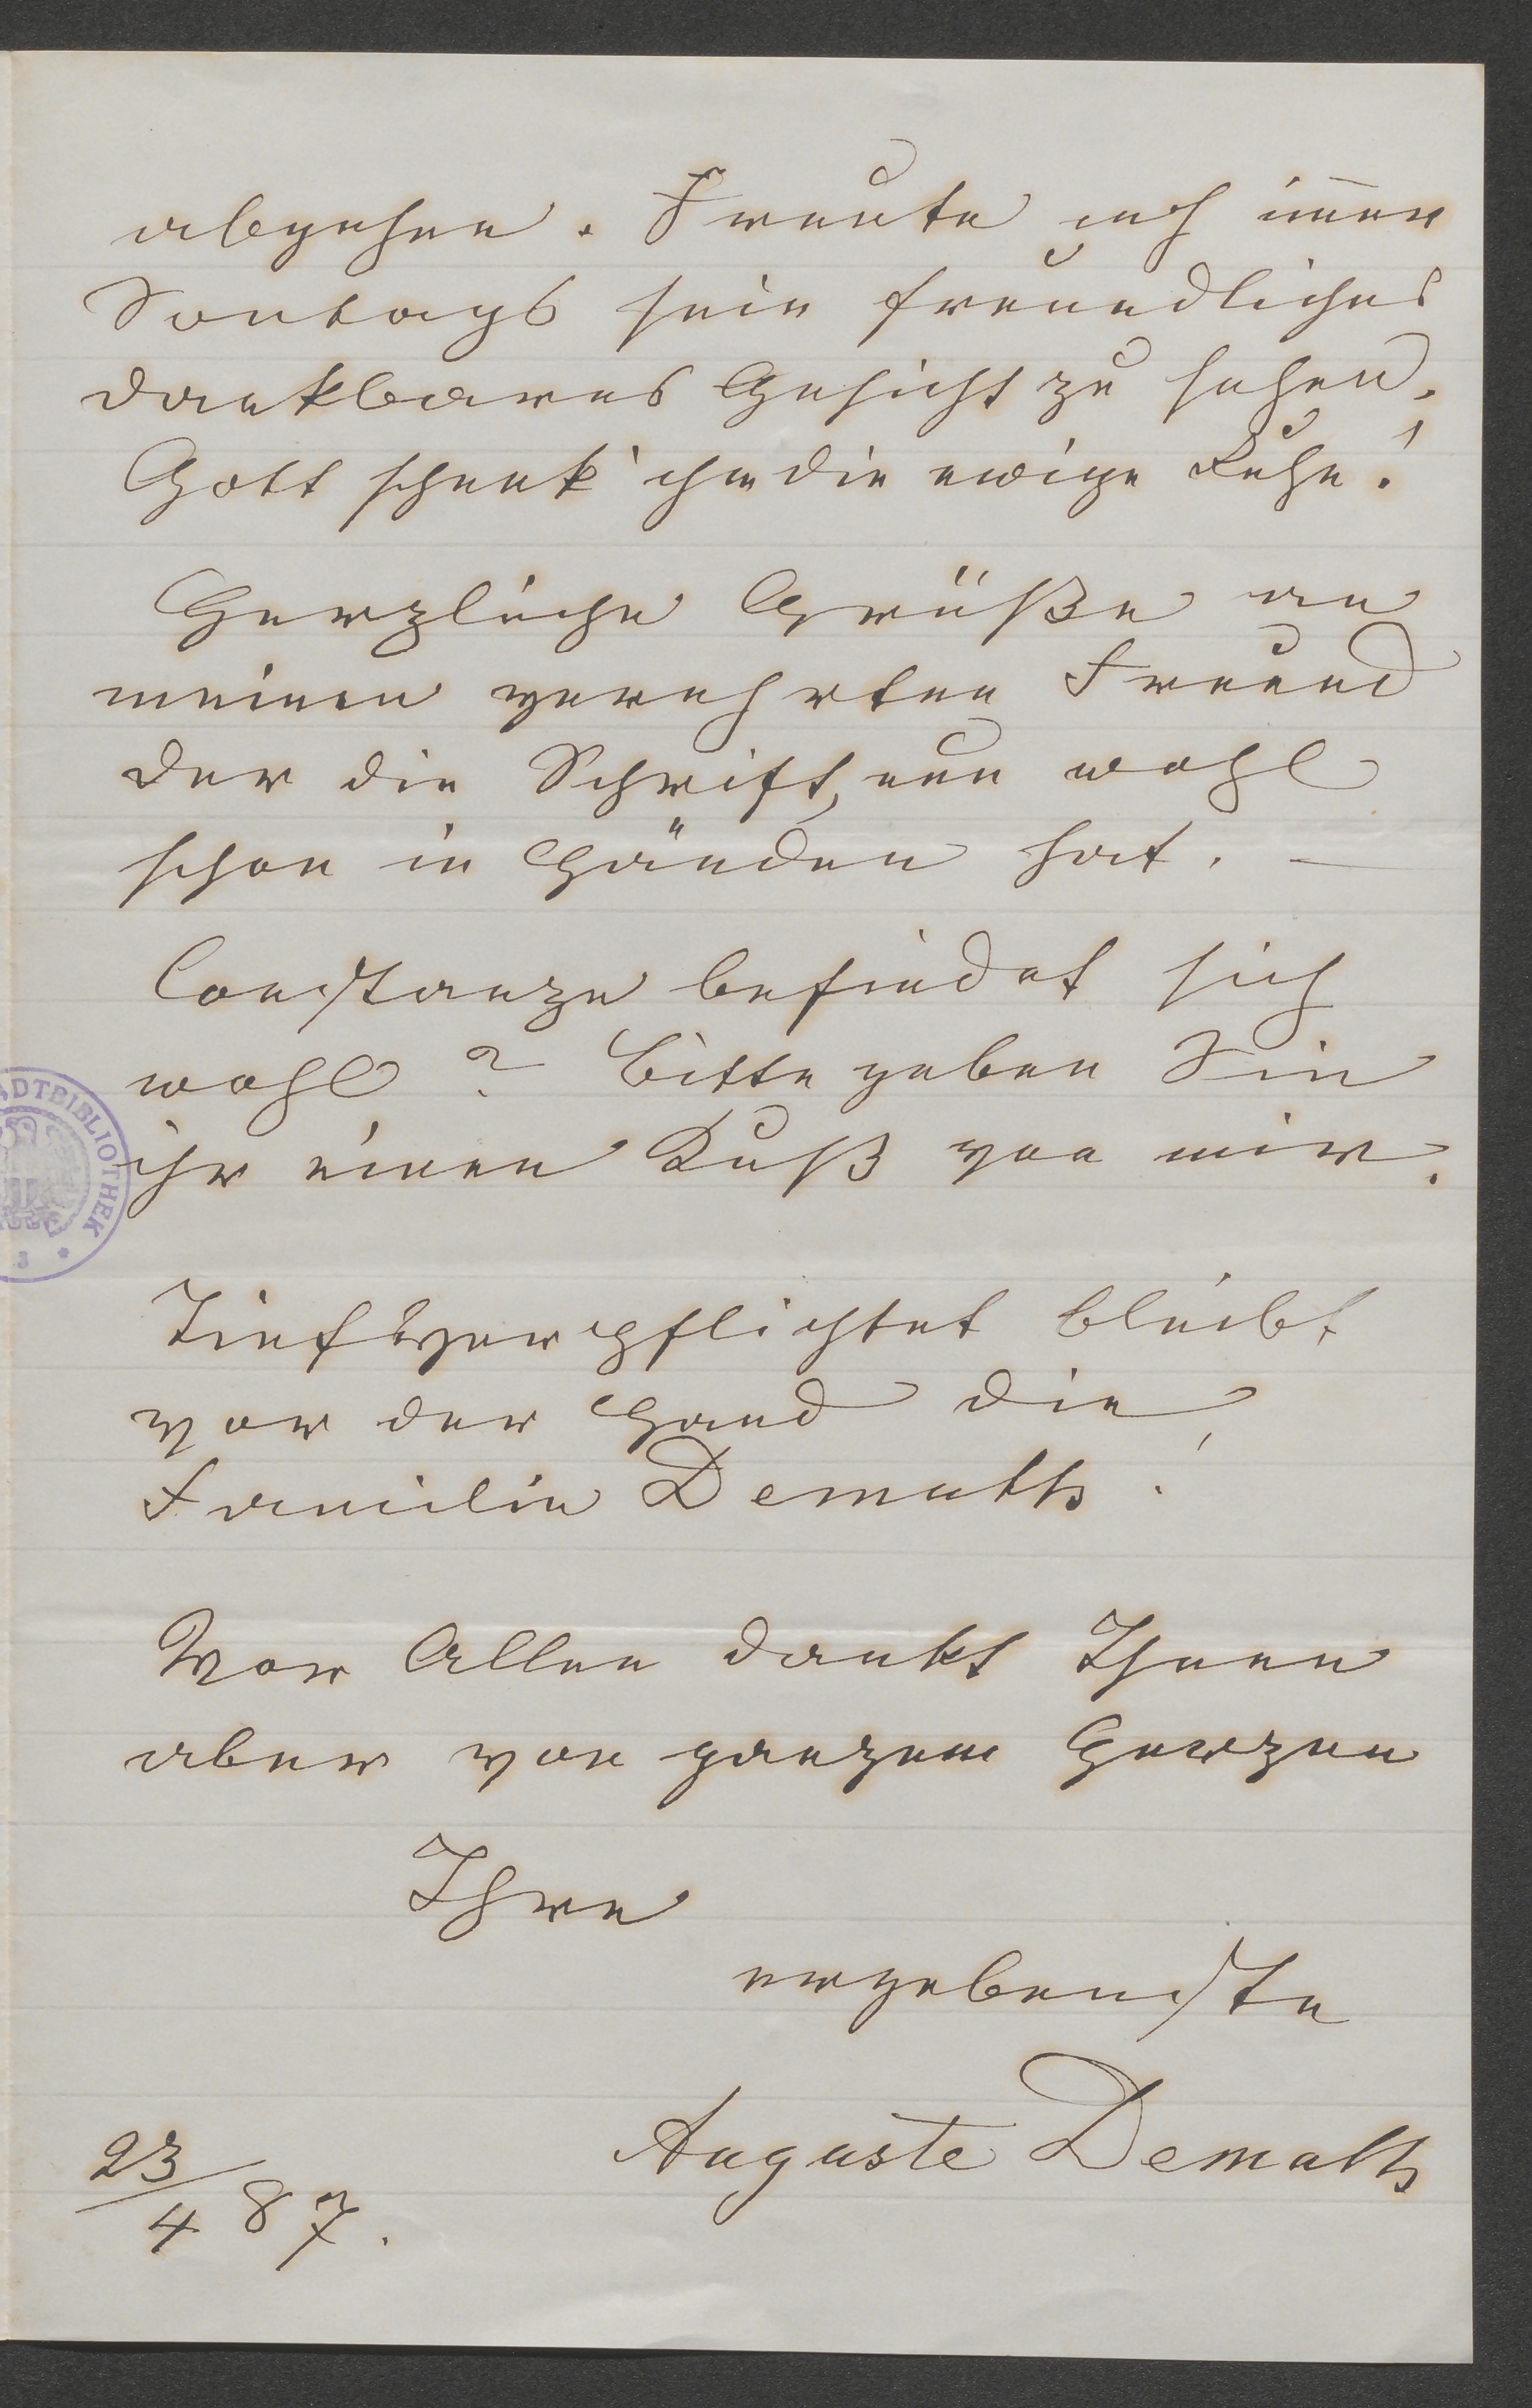 abgehen. Freute uns immer
Sontags sein freundliches
dankbares Gesicht zu sehen.
Gott schenk' ihm die ewige Ruhe!
Herzliche Grüße an
meinen verehrten Freund
der die Schrift, nun wohl
schon in Händen hat. —
Constanze befindet sich
wohl? Bitte geben Sie
ihr einen Kuß von mir.
Tiefverpflichtet bleibt
vor der Hand die
Familie Demuth!
Vor Allen dankt Ihnen
aber von ganzem Herzen
Ihre
ergebenste
Auguste Demuth
23/4 87.
ADTBIBLIOTHEK